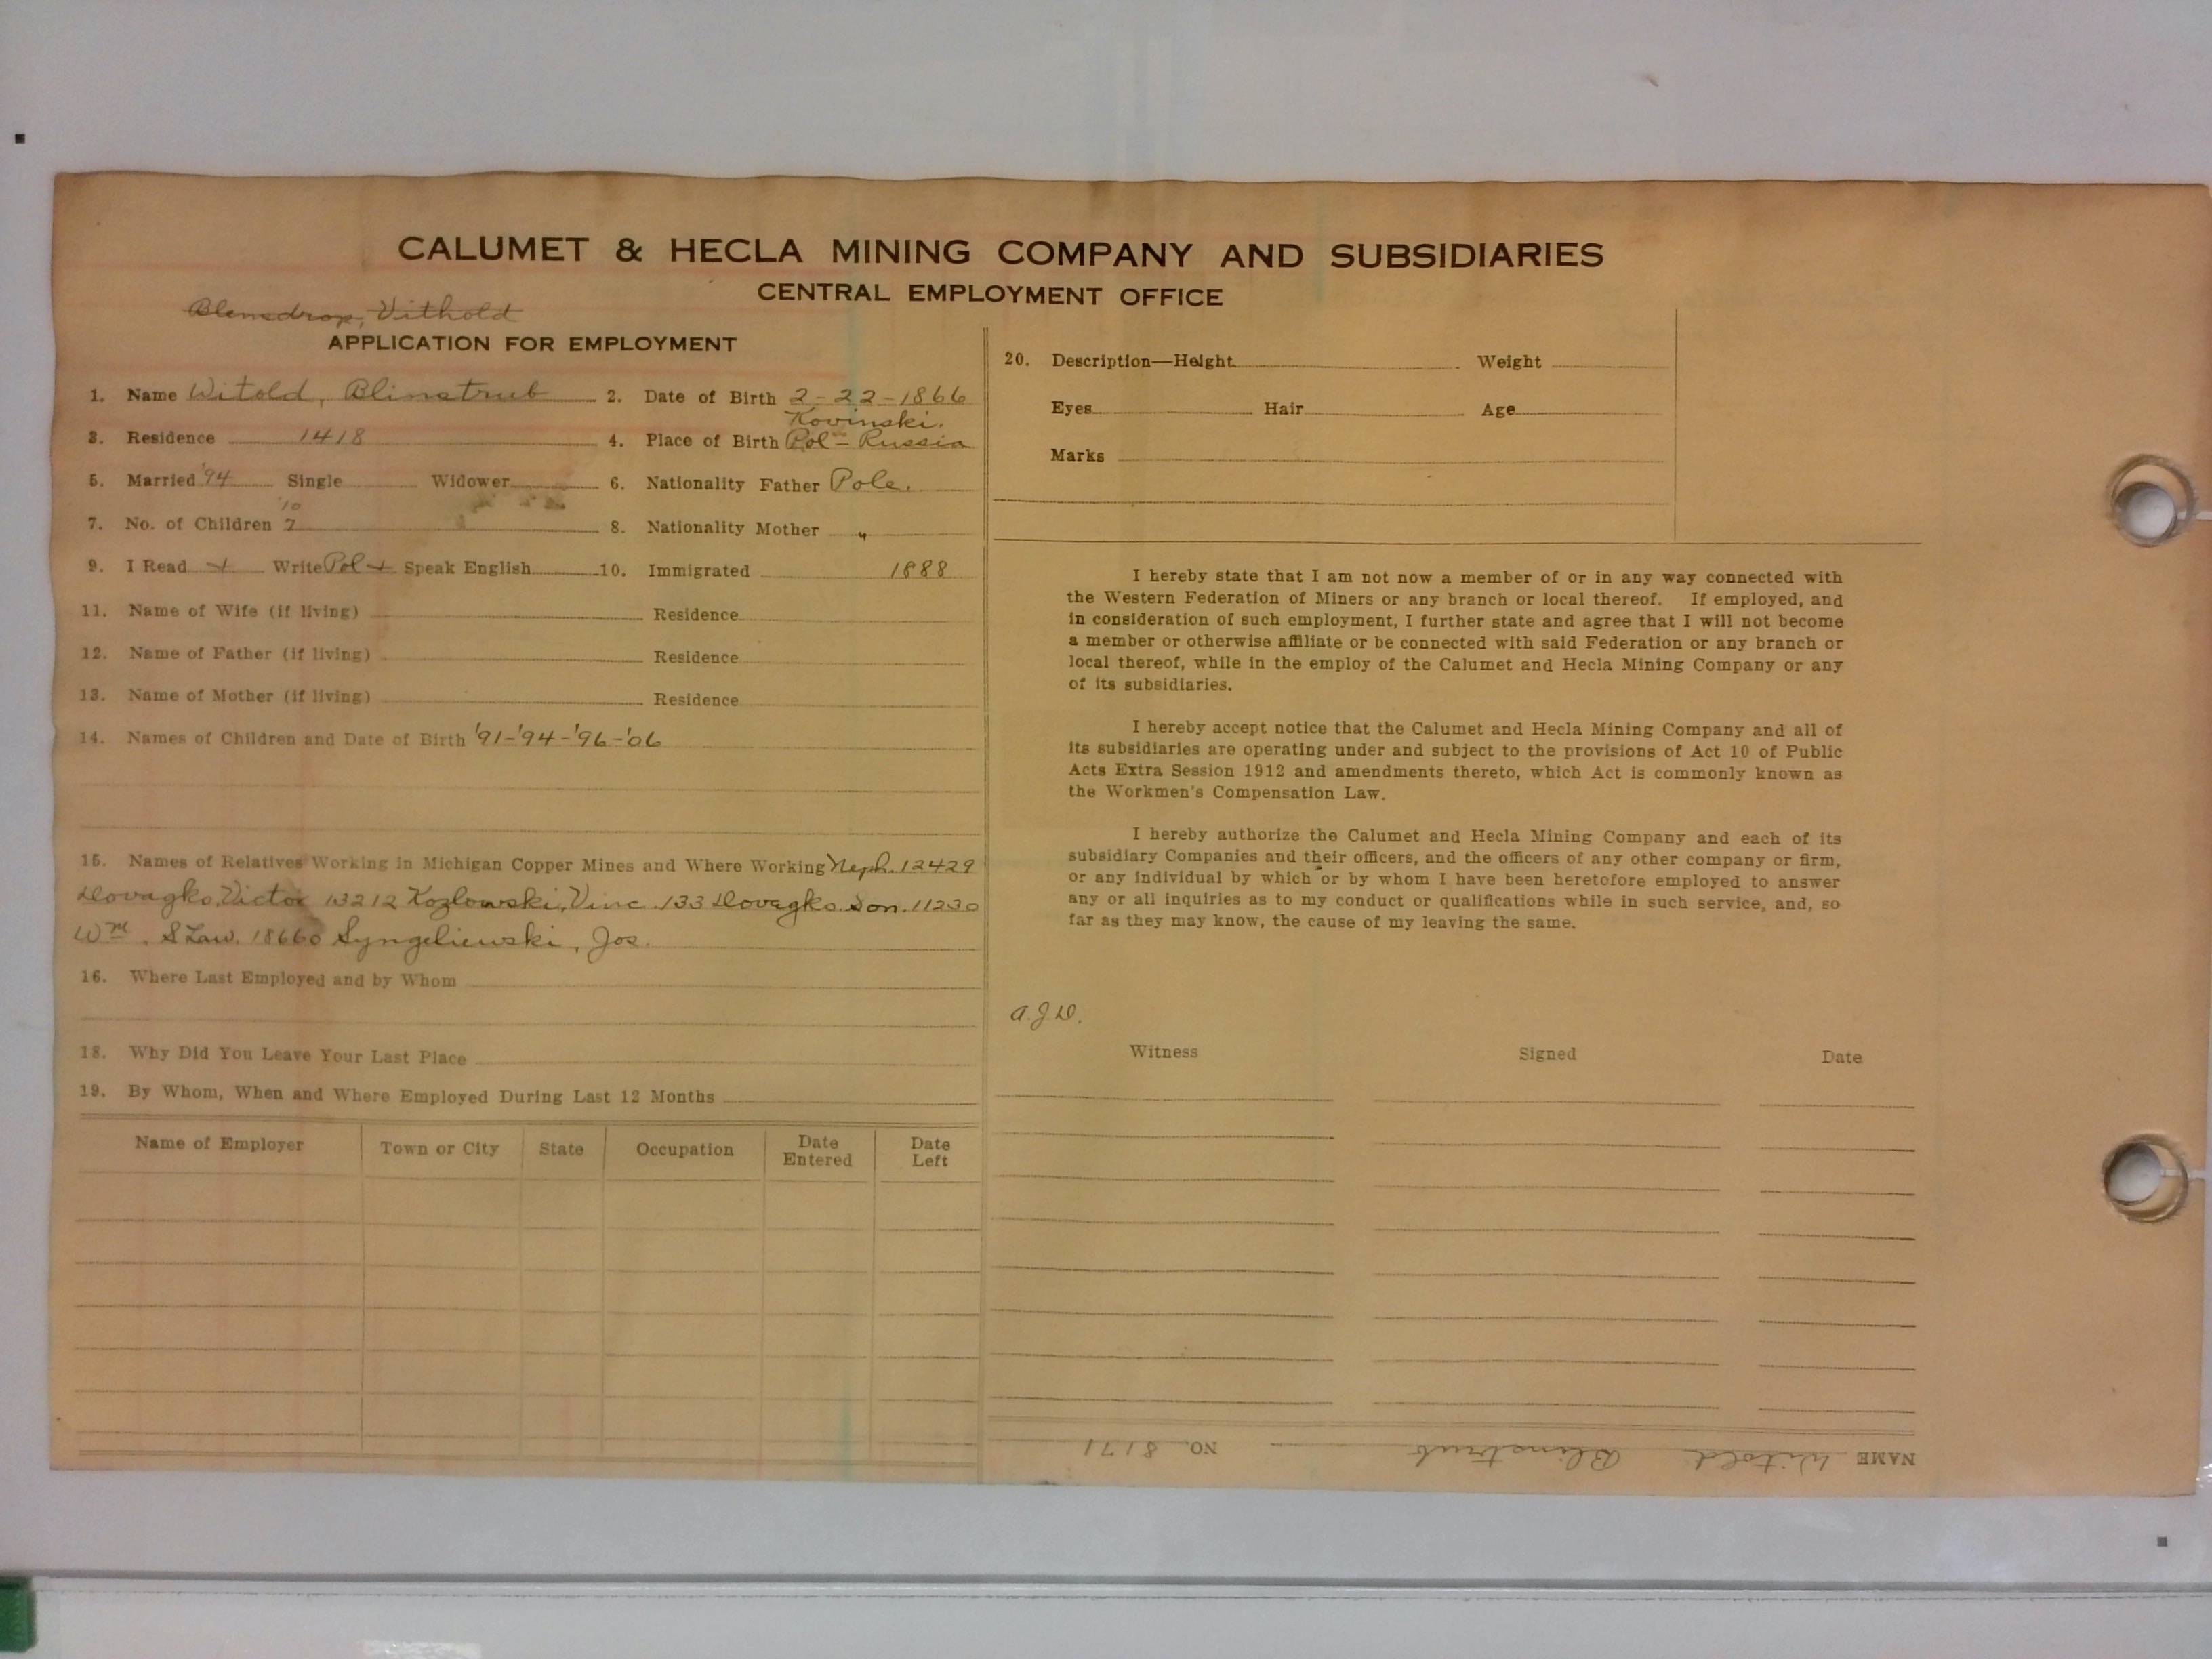 CALUMET & HECLA MINING COMPANY AND SUBSIDIARIES
CENTRAL EMPLOYMENT OFFICE
Blemsdrop, Vithold
APPLICATION FOR EMPLOYMENT
1. Name Witold, Blinstrub 2. Date of Birth 2-22-1866
Kovinski.
3. Residence 1418 4. Place of Birth Pol - Russia
5. Married '94 Single Widower 6. Nationality Father Pole.
'10
7. No. of Children 7 8. Nationality Mother "
9. I Read Write Pol Speak English 10. Immigrated 1888
11. Name of Wife (if living) Residence
12. Name of Father (if living) Residence
13. Name of Mother (if living) Residence
14. Names of Children and Date of Birth '91-'94-'96-'06
15. Names of Relatives Working in Michigan Copper Mines and Where Working Neph. 12429
Dovagko, Victor 13212 Kozlowski, Vinc. 133 Dovagko Son. 11230
Wm. S Law. 18660 Syngeliewski, Jos.
16. Where Last Employed and by Whom
18. Why Did You Leave Your Last Place
19. By Whom, When and Where Employed During Last 12 Months
Name of Employer Town or City State Occupation Date Entered Date Left
20. Description—Height Weight
Eyes Hair Age
Marks
I hereby state that I am not now a member of or in any way connected with
the Western Federation of Miners or any branch or local thereof. If employed, and
in consideration of such employment, I further state and agree that I will not become
a member or otherwise affiliate or be connected with said Federation or any branch or
local thereof, while in the employ of the Calumet and Hecla Mining Company or any
of its subsidiaries.
I hereby accept notice that the Calumet and Hecla Mining Company and all of
its subsidiaries are operating under and subject to the provisions of Act 10 of Public
Acts Extra Session 1912 and amendments thereto, which Act is commonly known as
the Workmen's Compensation Law.
I hereby authorize the Calumet and Hecla Mining Company and each of its
subsidiary Companies and their officers, and the officers of any other company or firm,
or any individual by which or by whom I have been heretofore employed to answer
any or all inquiries as to my conduct or qualifications while in such service, and, so
far as they may know, the cause of my leaving the same.
A.J.D.
Witness Signed Date
NAME Witold Blinstrub NO. 8171